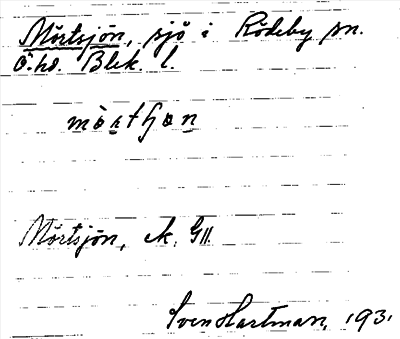 Mörtsjön, sjö i Rödeby sn.
Ö. hd. Blek. l.
Mörtsjön, ek. G11.
Sven Hartman, 1931